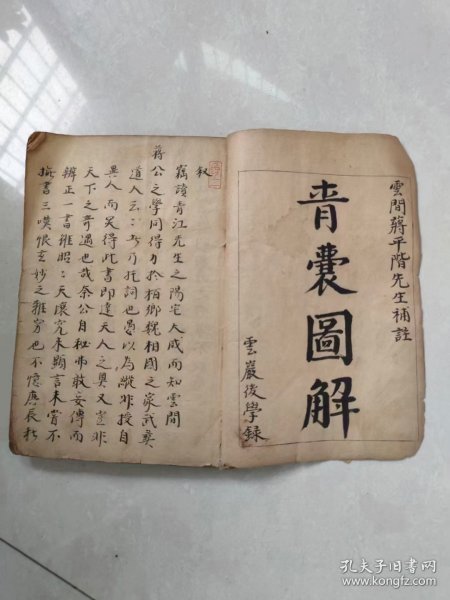 雲間蔣平階先生補註
青囊圖解
雲巖後學録
叙
竊讀青江先生之陽宅大成而知雲間
蔣公之學同得力於栢鄉魏相國之家武夷
道人云云乃可托詞也愚以為縱非授自
異人而笑得此書即達天人之奥又豈非
天下之奇遇也哉奈公自秘弗敢妄傳而
辨正一書雖昭昭天壤究未顯言未嘗不
撫書三嘆恨玄妙之難窮也不憶應長杜
孔夫子旧书网
www.kongfz.com